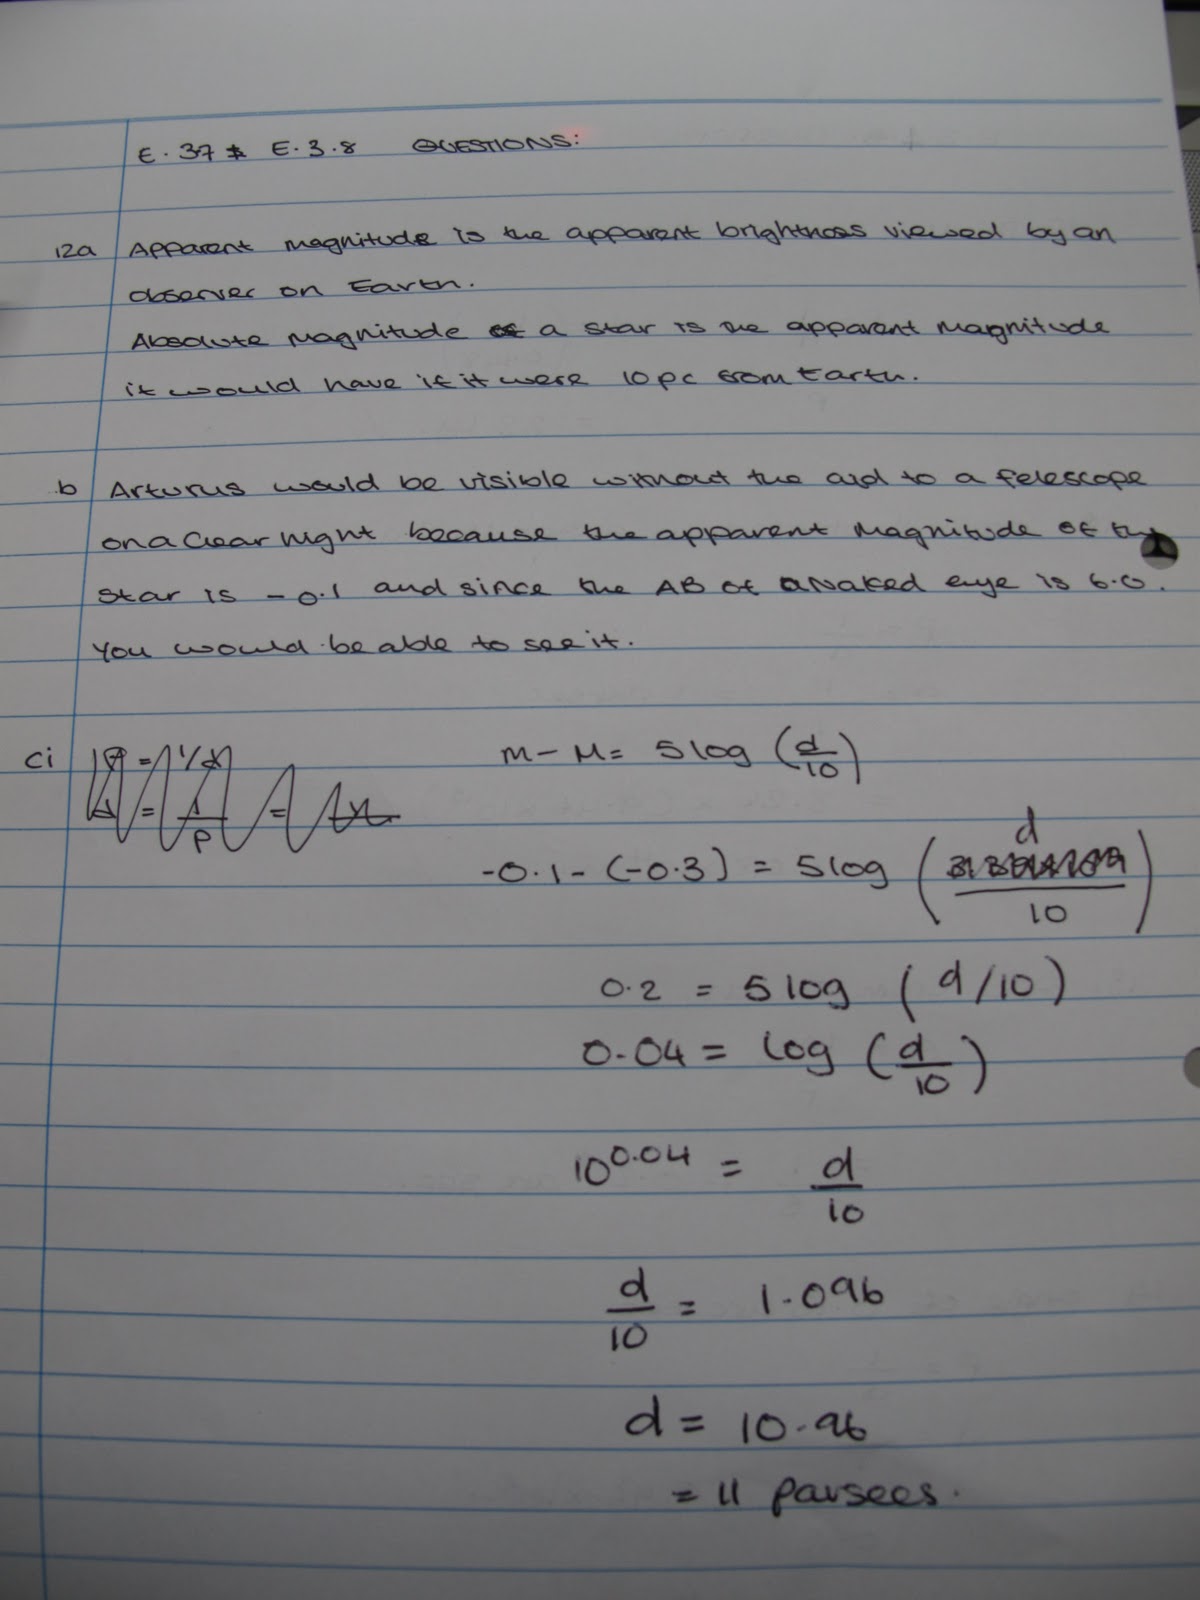 E.37 & E.3.8 QUESTIONS:
12a Apparent magnitude is the apparent brightness viewed by an
observer on Earth.
Absolute magnitude of a star is the apparent magnitude
it would have if it were 10pc from Earth.
b Arturus would be visible without the aid to a telescope
on a clear night because the apparent magnitude of the
star is -0.1 and since the AB of a Naked eye is 6.0.
You would be able to see it.
ci m - M = 5 log (d/10)
-0.1 - (-0.3) = 5 log (d/10)
0.2 = 5 log (d/10)
0.04 = log (d/10)
10^0.04 = d/10
d/10 = 1.096
d = 10.96
= 11 parsecs.